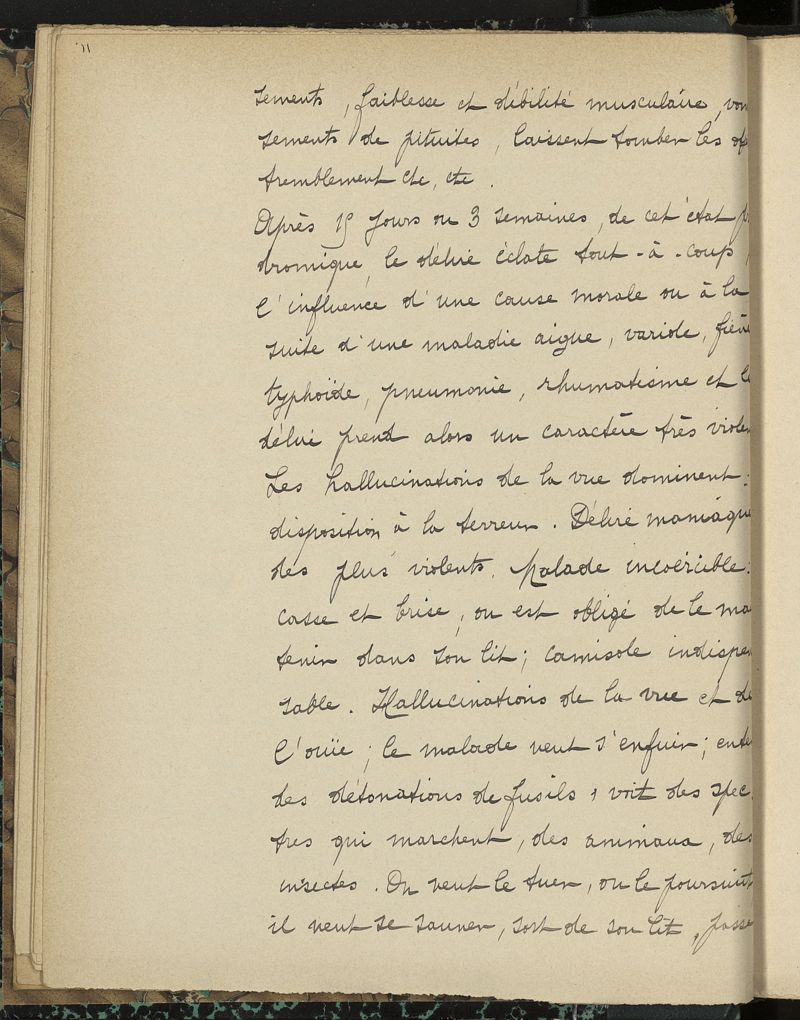 sements, faiblesse et débilité musculaire, vom
sements de pituites, laissent tomber les
tremblement etc, etc.
Après 15 jours ou 3 semaines, de cet état
dromique, le délire éclate tout-à-coup,
l'influence d'une cause morale ou à la
suite d'une maladie aigue, variole, fièv
typhoïde, pneumonie, rhumatisme et le
délire prend alors un caractère très violen
Les hallucinations de la vue dominent:
disposition à la terreur. Délire maniaque
des plus violents. Malade incoërcible:
casse et brise, on est obligé de le ma
tenir dans son lit; camisole indispen
sable. Hallucinations de la vue et de
l'ouïe; le malade veut s'enfuir; ente
des détonations de fusils, voit des spec
tres qui marchent, des animaux, des
insectes. On veut le tuer, on le poursuit
il veut se sauver, sort de son lit, passe